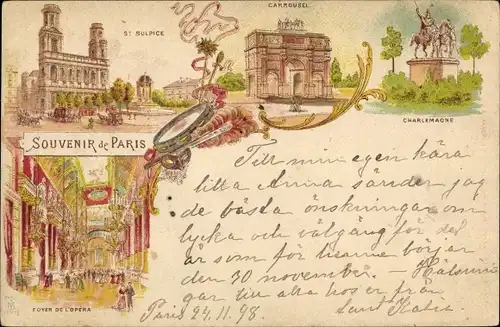 ST SULPICE
CARROUSEL
CHARLEMAGNE
SOUVENIR de PARIS
FOYER DE L'OPERA
Till min egen kära
lilla Anna sänder jag
de bästa önskningar om
lycka och välgång för det
år som för henne börjar
den 30 november. — Helsnin
gar till alla hos er från
Paris 24.11.98.